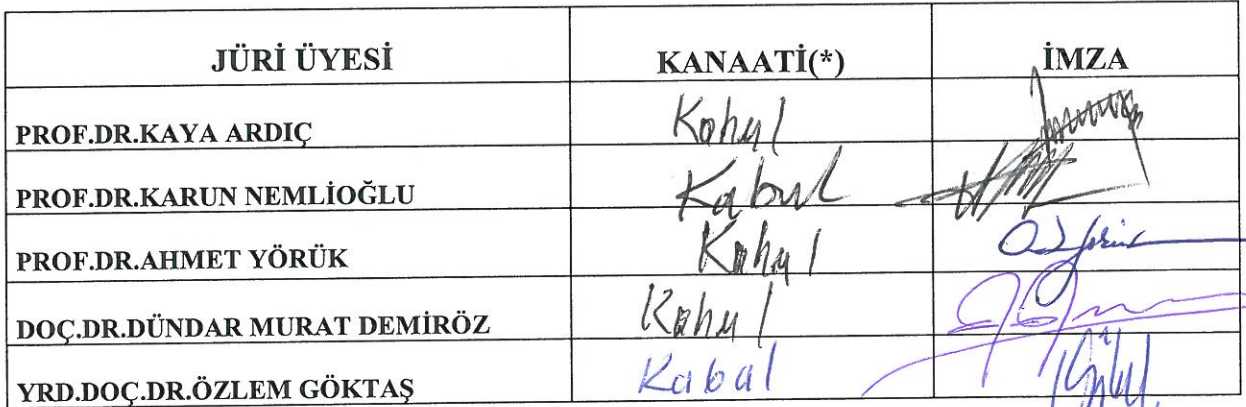 JÜRİ ÜYESİ KANAATİ(*) İMZA
PROF.DR.KAYA ARDIÇ Kabul
PROF.DR.KARUN NEMLİOĞLU Kabul
PROF.DR.AHMET YÖRÜK Kabul
DOÇ.DR.DÜNDAR MURAT DEMİRÖZ Kabul
YRD.DOÇ.DR.ÖZLEM GÖKTAŞ Kabul